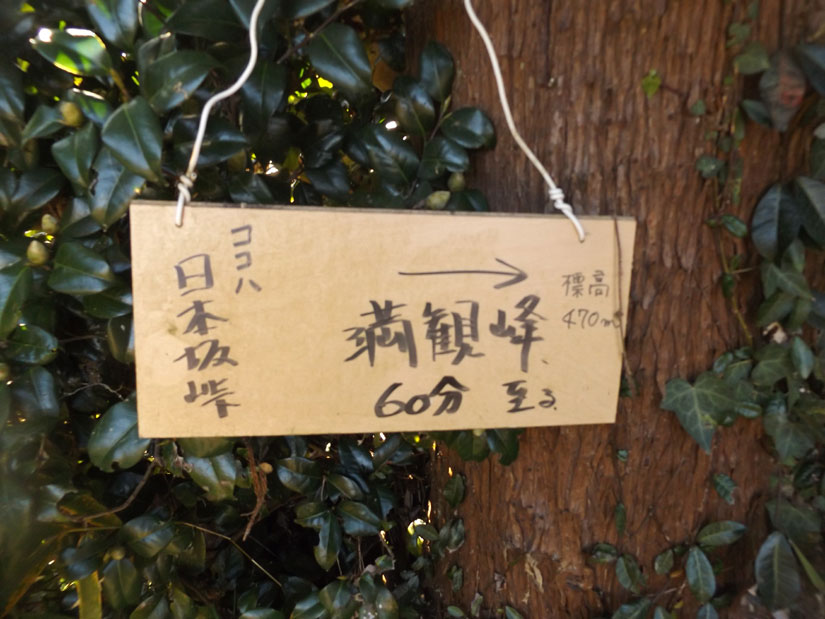 ココハ
日本坂峠
→
満観峰
60分 至る
標高
470m